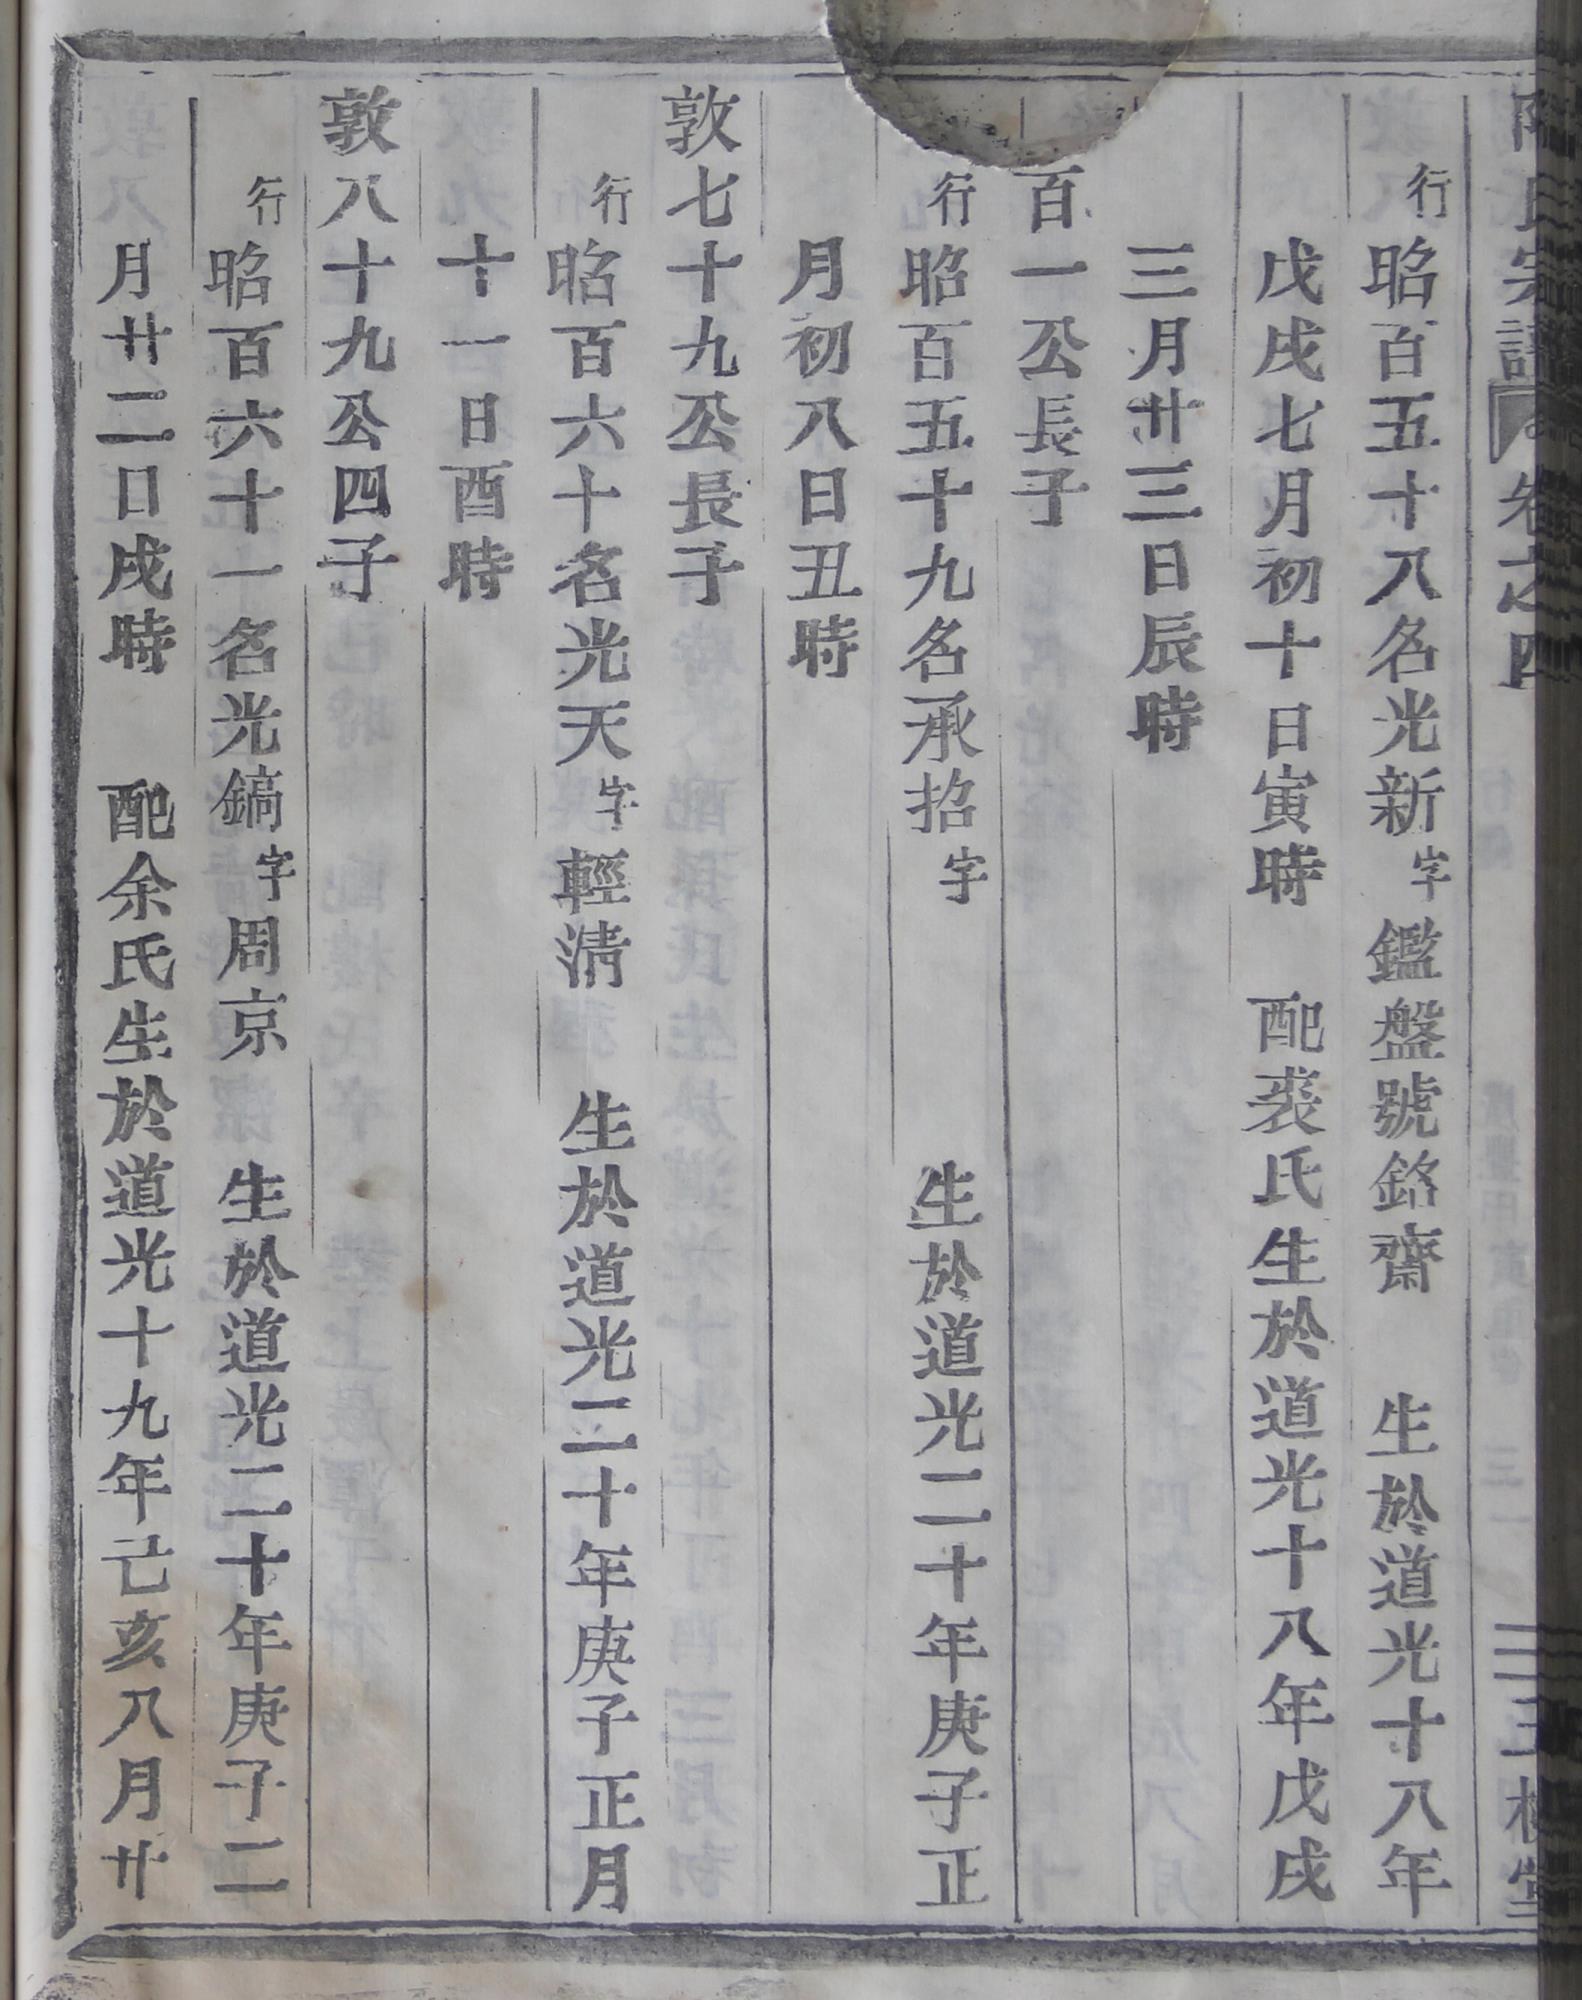 氏宗譜 卷之四
行昭百五十八名光新字鑑盤號銘齋 生於道光十八年
戊戌七月初十日寅時 配裘氏生於道光十八年戊戌
三月廿三日辰時
百一公長子
行昭百五十九名承招字 生於道光二十年庚子正
月初八日丑時
敦七十九公長子
行昭百六十名光天字輕淸 生於道光二十年庚子正月
十一日酉時
敦八十九公四子
行昭百六十一名光鎬字周京 生於道光二十年庚子二
月廿二日戌時 配余氏生於道光十九年己亥八月廿